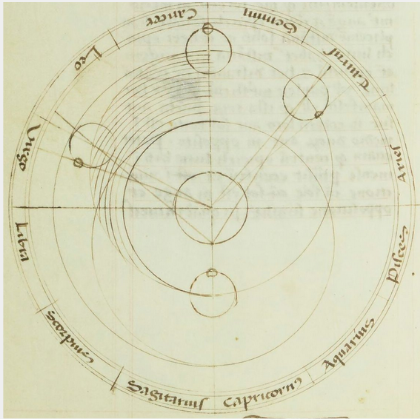 Cancer
Gemini
Taurus
Aries
Pisces
Aquarius
Capricornus
Sagitarius
Scorpius
Libra
Virgo
Leo